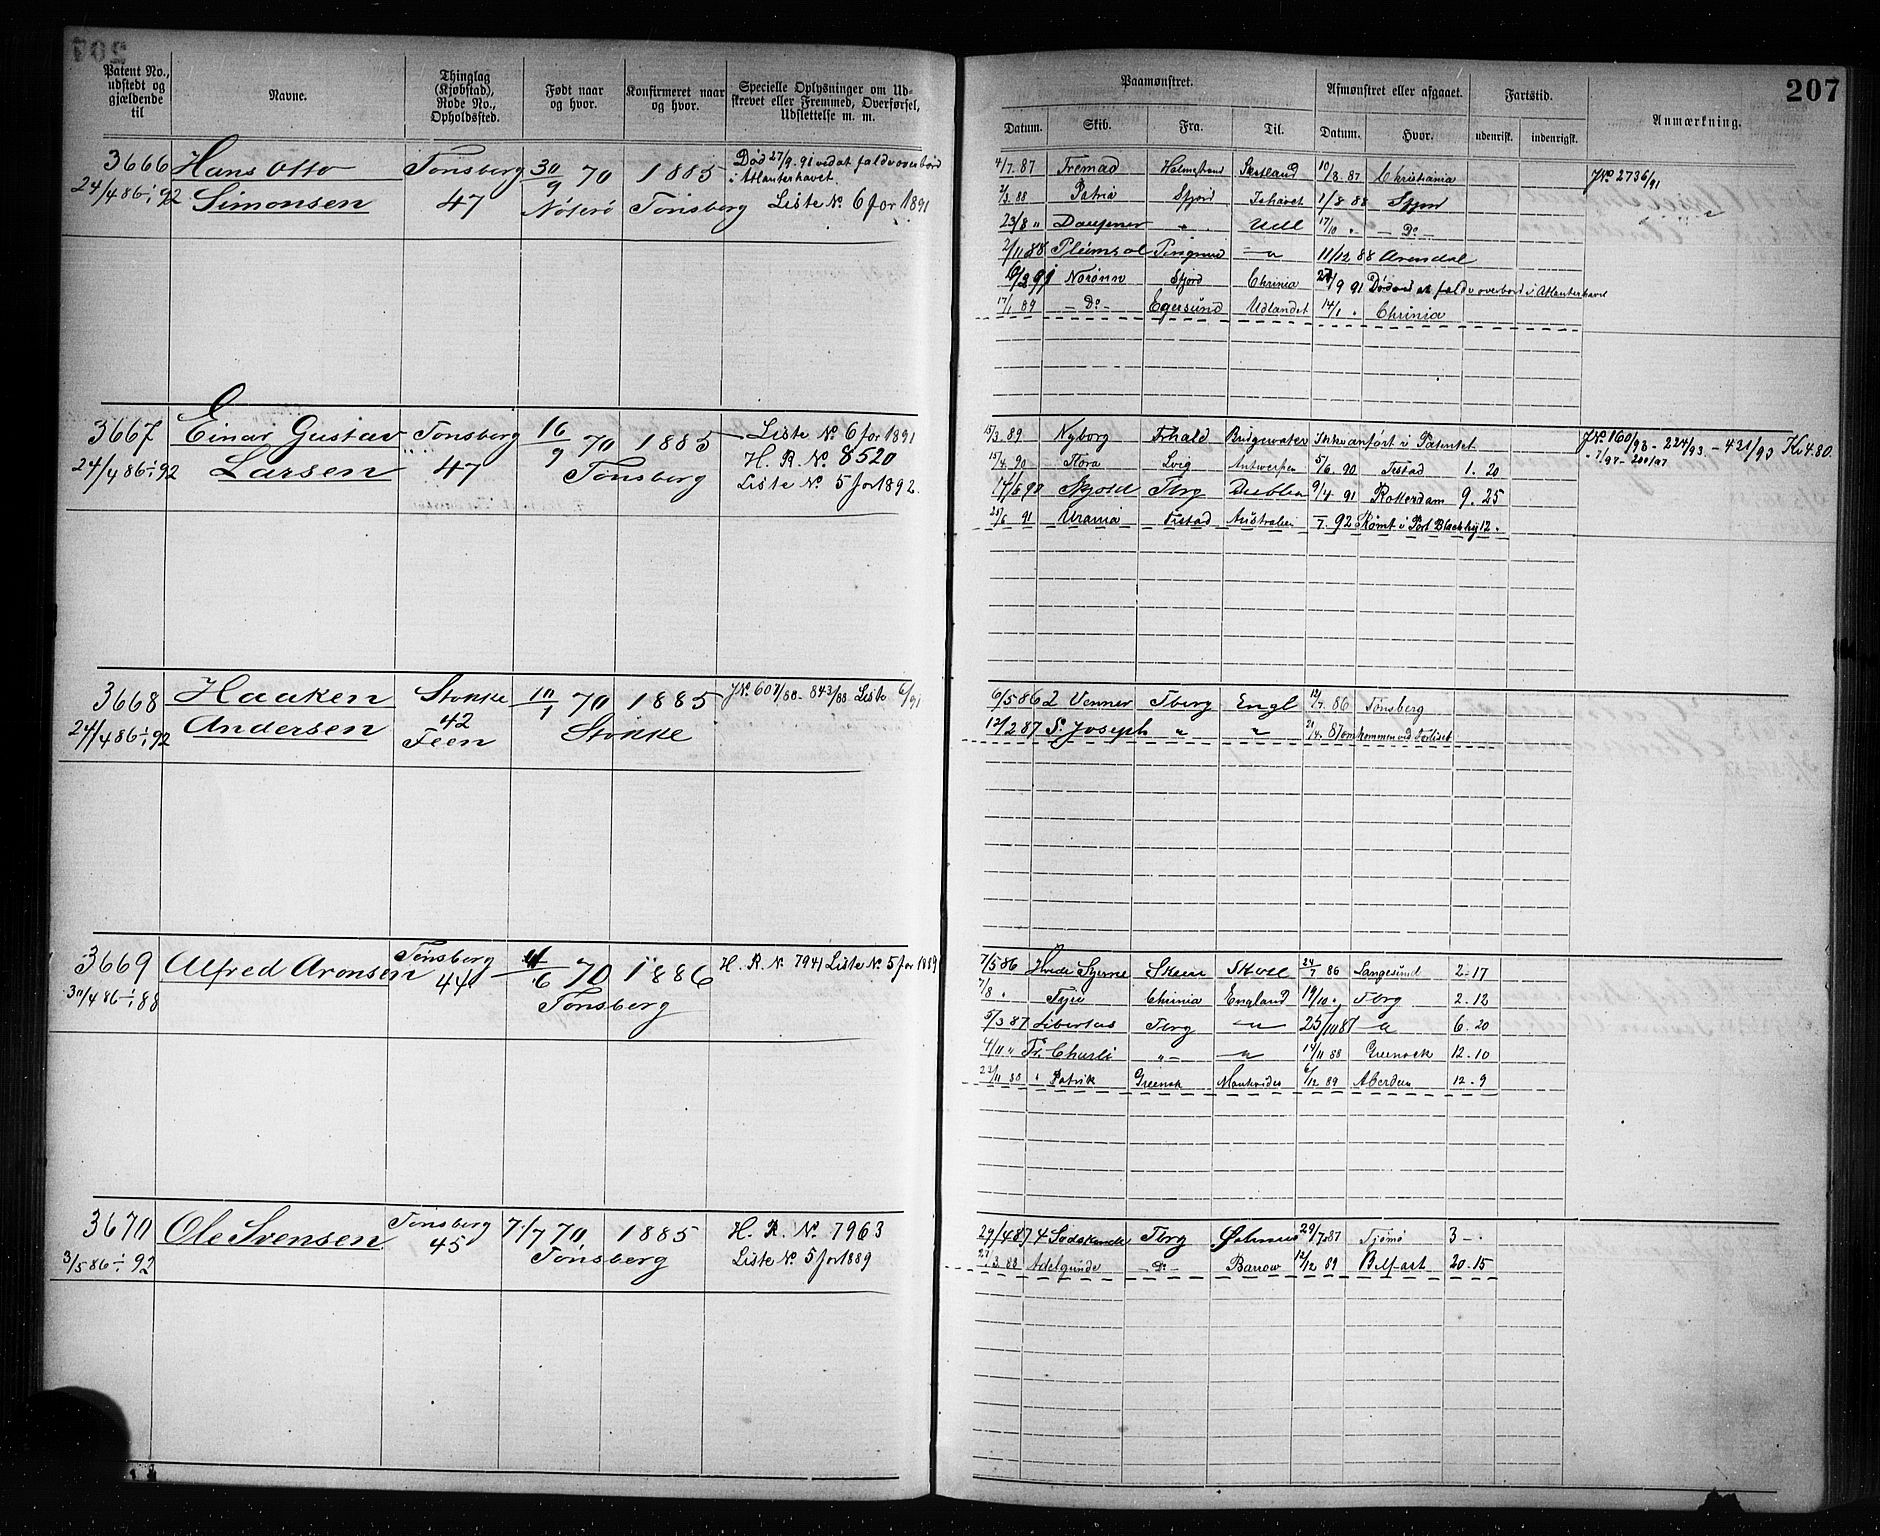 207
Patent No., udstedt og gjældende til
Navne.
Thinglag (Kjøbstad), Rode No., Opholdssted.
Født naar og hvor.
Konfirmeret naar og hvor.
Specielle Oplysninger om Udskrevet eller Fremmed, Overførsel, Udslettelse m. m.
Paamønstret.
Afmønstret eller afgaaet.
Fartstid.
Anmærkning.
Datum.
Skib.
Fra.
Til.
Datum.
Hvor.
udenrisk.
indenrigsk.
3666 Hans Otto Tønsberg 30/9 70 1885 Død 27/9 91 ved at falde overbord i Atlanterhavet.
24/4 86 - 1/1 92 Simonsen 47 Nøterø Tønsberg Liste No 6 for 1891
4/7. 87 Fremad Holmestrand 10/8. 87 Christiania JNo 2736/91
2/3 88 Patria Sfjord Ishavet 1/8 88 Sfjord
23/8 " " Udl 17/10 " - Do -
2/11 88 11/12 88 Arendal
Norønn Sfjord Chrinia 27/9 91 Død ved at falde overbord i Atlanterhavet
17/1 89 - Do - Egersund Udlandet 14/1 " Chrinia
3667 Einar Gustav Tønsberg 16/9 70 1885 Liste No 6 for 1891
24/4 86 - 1/1 92 Larsen 47 Tønsberg H. R. No 8520
Liste No 5 for 1892.
15/3. 89 Nyborg Frhald Bridgewater Ikke anført i Patentet
15/4. 90 Flora Lvig Antwerpen 5/6. 90 Frstad 1. 20
Skjold Tbrg Dublin 9/4 91 Rotterdam 9. 25
23/6 91 Urania Frstad Australien 7. 92 Rømt i Port 12.
JNo 160/93 - 224/93 - 421/93 Kr 4.80.
3668 Haaken Stokke 10/1 70 1885 JNo 607/88 - 843/88 Liste 6/91
24/4 86 - 1/1 92 Andersen 42 Feen Stokke
6/5 86 2 Venner Tberg Engl 12/7. 86 Tønsberg
12/2 87 St. Joseph " " 21/4. 87 omkommen ved Forliset
3669 Alfred Aronsen Tønsberg 44 70 1886 H. R. No 7941 Liste No 5 for 1889
30/4 86 - 1/1 88 Tønsberg
7/5 86 Hvide Stjerne Skien 24/7 86 Langesund 2-17
7/8 " Chrinia England 19/10 " Tbrg 2. 12
5/3 87 Libertas Tbrg - " - 25/10 87 - " 6. 20
4/11 " Fr. Charli " - - " 14/11 88 Greenock 12. 10
22/11 88 " Patrik Greenok 6/12 89 Aberdeen 12. 9
3670 Ole Svensen Tønsberg 7/7 70 1885 H. R. No 7963
3/5 86 - 1/1 92 45 Tønsberg Liste No 5 for 1889
29/4 87 4 Sødskende Tbrg 29/7 87 Tjømø 3 -
27/3. 88 Adelgunde - Do - Barrow 12/12 89 Belfast 20. 15